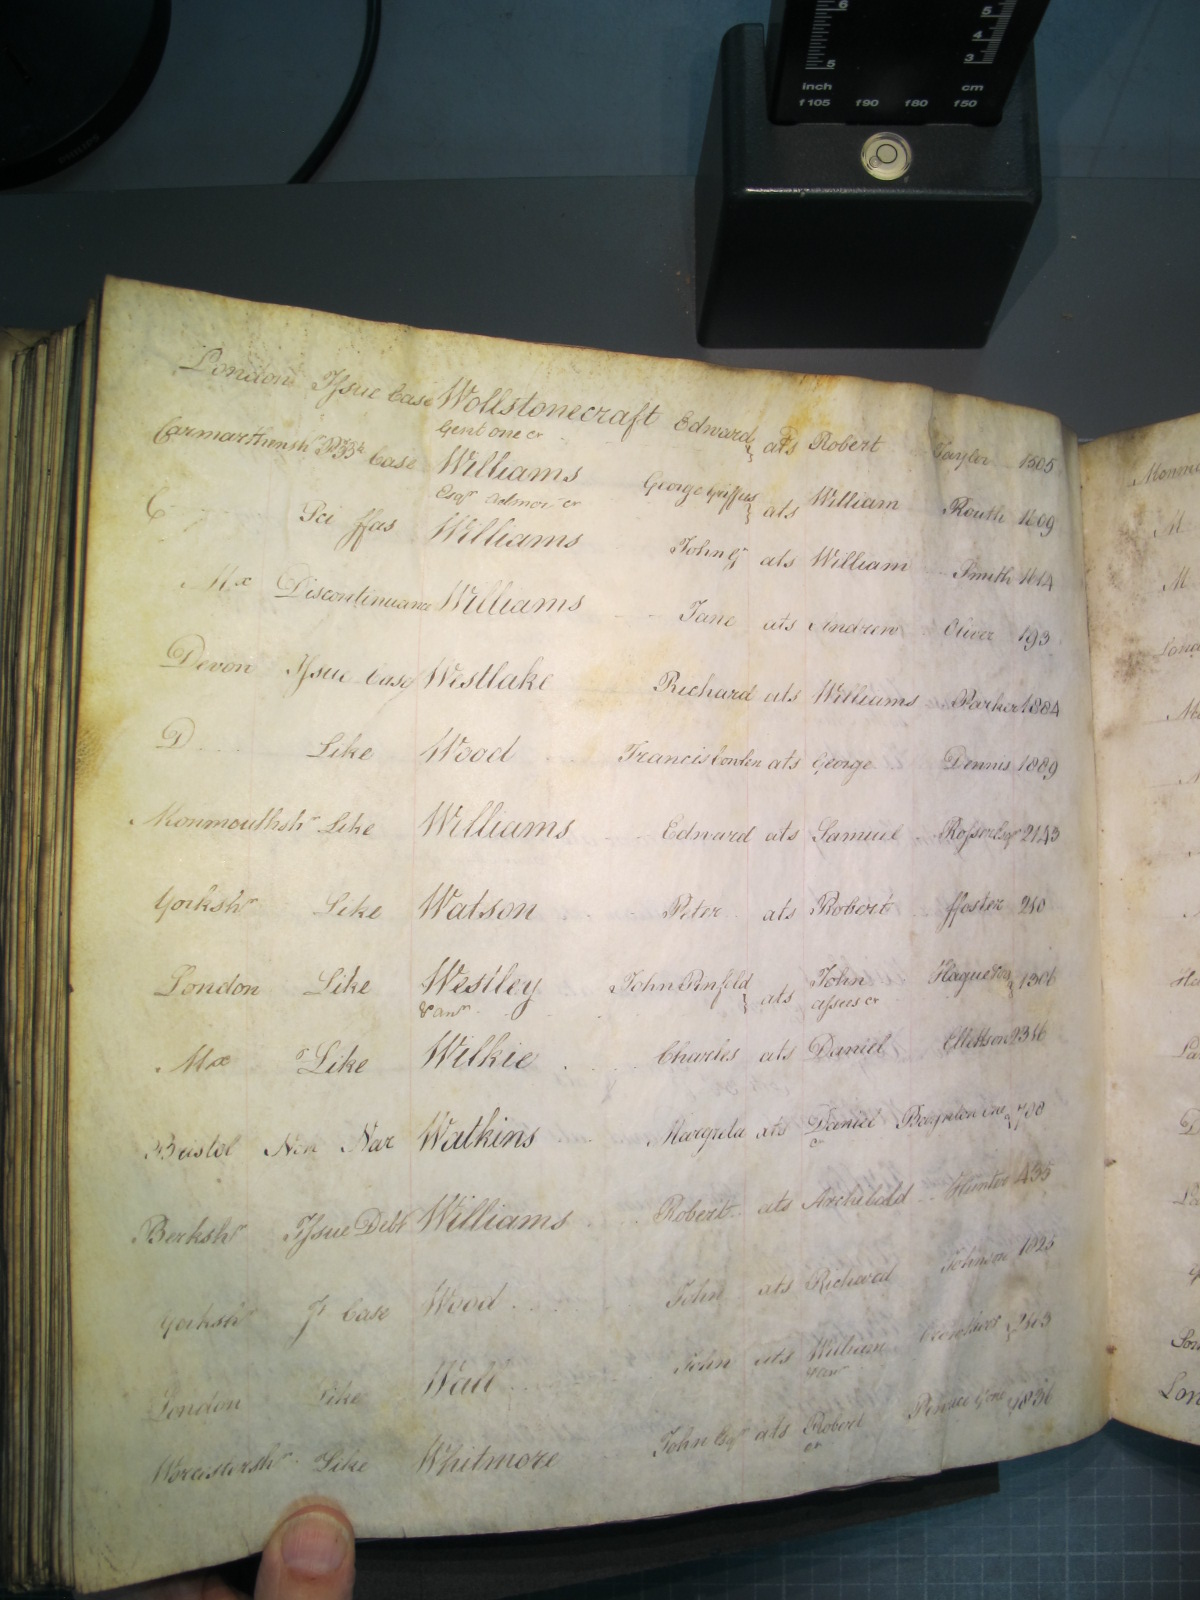 6 5
5 4
3
inch cm
f105 f90 f80 f50
PHILIPS
London Issue Case Wollstonecraft Edward ats Robert Taylor 1505
Gent one &c
Carmarthensh^r Case Williams George Griffies ats William Routh 1609
Esq^r Admor &c
C Sci ffas Williams John G^t ats William Smith 1614
Mx Discontinuance Williams Jane ats Andrew Oliver 193
Devon Issue Case Westlake Richard ats Williams Parker 1884
D Like Wood Francis Cowlen ats George Dennis 1889
Monmouthsh^r Like Williams Edward ats Samuel Rosser Esq^r 2143
Yorksh^r Like Watson Peter ats Robert ffoster 210
London Like Westley John Pinfold ats John Hague 1306
& an^r assees &c
Mx Like Wilkie Charles ats Daniel Ellettson 2316
Bristol Non Nar Watkins Margreta ats Daniel Boynton one 708
&c
Berksh^r Issue Debt Williams Robert ats Archibald Hunter 435
Yorksh^r J^t Case Wood John ats Richard Johnson 1825
London Like Wall John ats William 2103
& an^r
Worcestersh^r Like Whitmore John Esq^r ats Robert Gent 1836
&c
Monm
M
M
Long
M
He
La
D
La
Lon
Lon